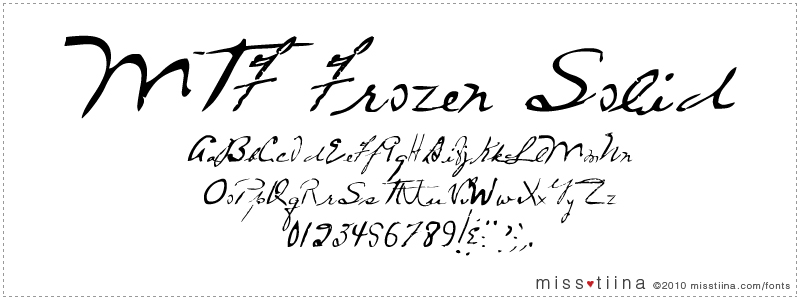 MTF Frozen Solid
AaBbCcDdEeFfGgHhIiJjKkLlMmNn
OoPpQqRrSsTtUuVvWwXxYyZz
0123456789!&:;"?',.
miss♥tiina ©2010 misstiina.com/fonts